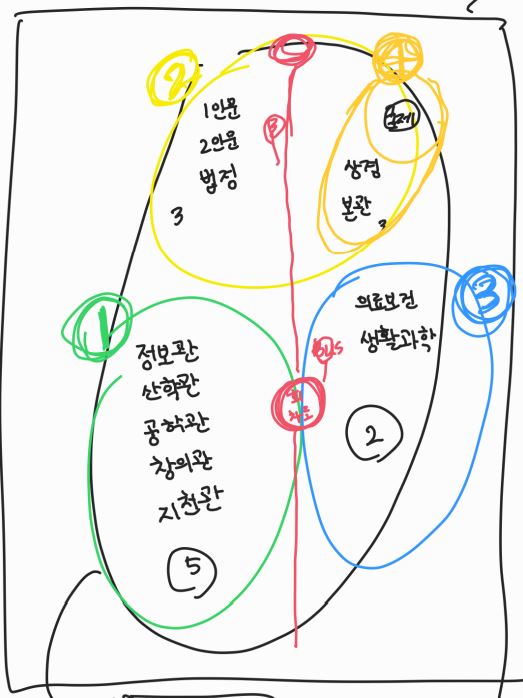 2
4
1인문
2인문
법정
3
B
국제
상경
본관
3
1
정보관
산학관
공학관
창의관
지천관
5
3
의료보건
생활과학
BUS
회
차로
2